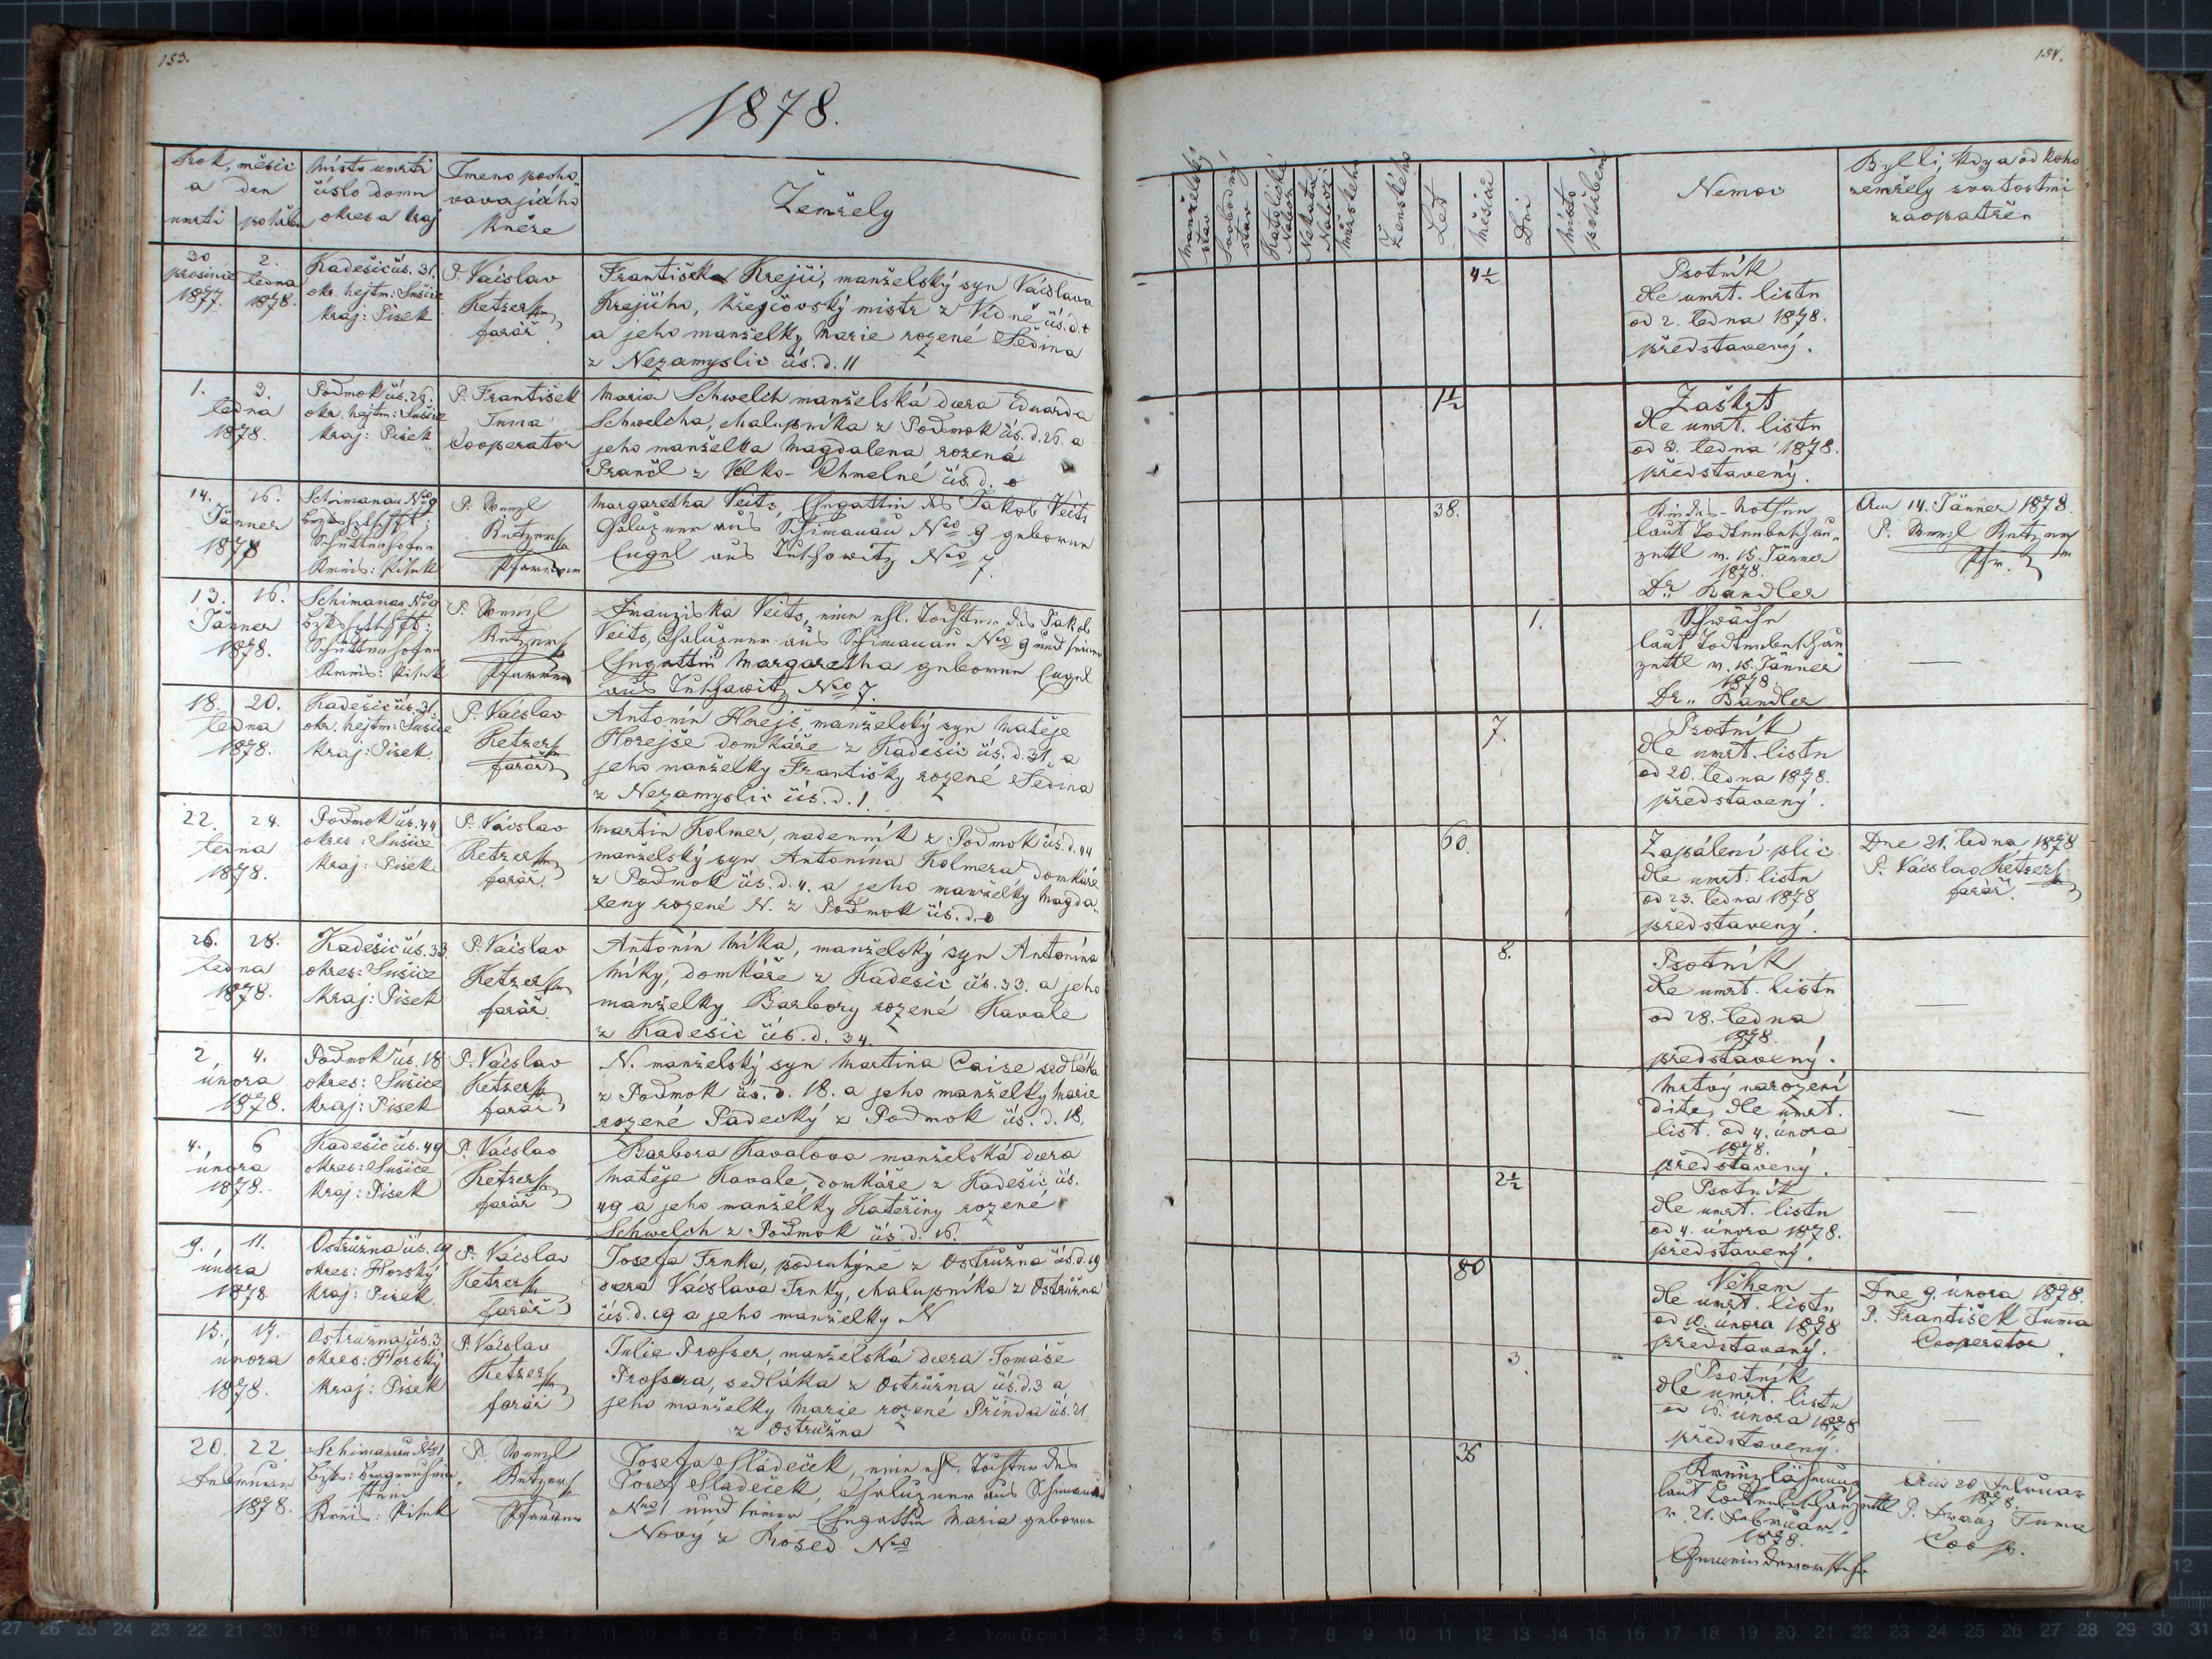 153.
1878.
rok, měsíc a den
umrti
pohřb.
místo umrti číslo domu okres a kraj
Jmeno pocho vavajícího Kněze
Zemřely
30. prosince 1877.
2. ledna 1878.
Kadešic čís. 31.
okr. hejtm: Sušice
Kraj: Pisek
P. Václav
Ketzer
farář
Františka Krejčí, manželský syn Václava
Krejčího, Krejčovský mistr z Vidně čís. d.
a jeho manželky Marie rozené Šedina
z Nezamyslic čís. d. 11
1. 3.
ledna
1878.
Podmok čís. 26.
okr. hejtm: Sušice
Kraj: Pisek
P. František
Tuma
Cooperator
Maria Schwelch manželská dcera Eduarda
Schwelcha, chalupníka z Podmok čís. d. 26. a
jeho manželka Magdalena rozená
z Velko-Chmelné čís. d. 0
14. 16.
Jänner
1878
Schimanau No 9
Schüttenhofen
Kreis: Pisek
P. Wenzl
Ketzer
Pfarrer
Margaretha Veits, Ehegattin des Jakob Veits
Chaluppner aus Schimanau No 9 geborene
Engel aus No 7.
13. 16.
Jänner
1878.
Schimanau No 9
Schüttenhofen
Kreis: Pisek
P. Wenzl
Ketzer
Pfarrer
Franziska Veits, eine ehl. Tochter des Jakob
Veits, Chaluppner aus Schimanau No 9 und seiner
Ehegattin Margaretha geborene Engel
aus No 7.
18. 20.
ledna
1878.
Kadešic čís. 31.
okr. hejtm: Sušice
Kraj: Pisek.
P. Václav
Ketzer
farář
Antonín Horejš, manželský syn Matěje
Horejše domkáře z Kadešic čís. d. 31. a
jeho manželky Františky rozené Šedina
z Nezamyslic čís. d. 1.
22. 24.
ledna
1878.
Podmok čís. 44
okres: Sušice
Kraj: Pisek
P. Václav
Ketzer
farář.
Martin Kolmer, nadenník z Podmok čís. d. 44
manželský syn Antonína Kolmera domkáře
z Podmok čís. d. 4. a jeho manželky Magda
leny rozené N. z Podmok čís. d. 0
26. 28.
ledna
1878.
Kadešic čís. 33.
okres: Sušice
Kraj: Pisek
P. Václav
Ketzer
farář.
Antonín Míka, manželský syn Antonína
Míky, domkáře z Kadešic čís. 33. a jeho
manželky Barbory rozené Kavale
z Kadešic čís. d. 34.
2. 4.
února
1878.
Podmok čís. 18
okres: Sušice
Kraj: Pisek
P. Václav
Ketzer
farář
N. manželský syn Martina Caise sedláka
z Podmok čís. d. 18. a jeho manželky Marie
rozené Padecký z Podmok čís. d. 18.
4. 6
února
1878.
Kadešic čís. 49
okres: Sušice
Kraj: Pisek
P. Václav
Ketzer
farář
Barbora Kavalova manželská dcera
Matěje Kavale, domkáře z Kadešic čís.
49 a jeho manželky Kateřiny rozené
Schwelch z Podmok čís. d. 16.
9. 11.
února
1878
Ostružna čís. 19
okres: Horský
Kraj: Pisek.
P. Václav
Ketzer
farář
Josefa Frnka, podruhyně z Ostružna čís. d. 19
dcera Václava Frnky, chalupníka z Ostružna
čís. d. 19 a jeho manželky N
15. 17.
února
1878.
Ostružna čís. 3
okres: Horský
Kraj: Pisek
P. Václav
Ketzer
farář
Julie Prosser, manželská dcera Tomáše
Prossera, sedláka z Ostružna čís. d. 3 a
jeho manželky Marie rozené Prinda čís. 21
z Ostružna
20. 22.
Februar
1878.
Schimanau No 1
Kreis: Pisek
P. Wenzl
Ketzer
Pfarrer
Josefa Sladeček, eine ehl. Tochter des
Josef Sladeček, Chaluppner aus Schimanau
No 1 und seiner Ehegattin Maria geborene
Nový z Rosed No
154.
manželský stav
Svobodný stav
Katolické Nabož.
Nekatol. Nabož.
Mužského
Ženského
Let
Měsíců
Dni
Místo pohřbení
Nemoc
Byl-li, kdy a od koho
zemřely svatostmi
zaopatřen
4½
Psotník
dle umrt. listu
od 2. ledna 1878.
představený.
1½
Zaškrt
dle umrt. listu
od 3. ledna 1878.
představený.
38.
laut Todtenbeschau-
zettl v. 15. Jänner
1878.
Dr. Bandler
Am 14. Jänner 1878.
P. Wenzl Ketzer
Pfr.
1.
Schwäche
laut Todtenbeschau
zettl v. 15. Jänner
1878.
Dr. Bandler
7.
Psotník
dle umrt. listu
od 20. ledna 1878.
představený.
60.
Zapálení plic
dle umrt. listu
od 23. ledna 1878
představený.
Dne 21. ledna 1878
P. Václav Ketzer
farář.
8.
Psotník
dle umrt. listu
od 28. ledna
1878.
představený.
Mrtvý narození
dítě, dle umrt.
list. od 4. února
1878.
představený.
2½
Psotník
dle umrt. listu
od 4. února 1878.
představený.
80
Věkem
dle umrt. listu
od 10. února 1878
představený.
Dne 9. února 1878.
P. František Tuma
Cooperator.
3.
Psotník
dle umrt. listu
od 16. února 1878
představený.
36
laut Todtenbeschauzettl
v. 21. Februar
1878.
Gemeindevorsteher
Am 20 Februar
1878.
P. Franz Tuma
Coop.